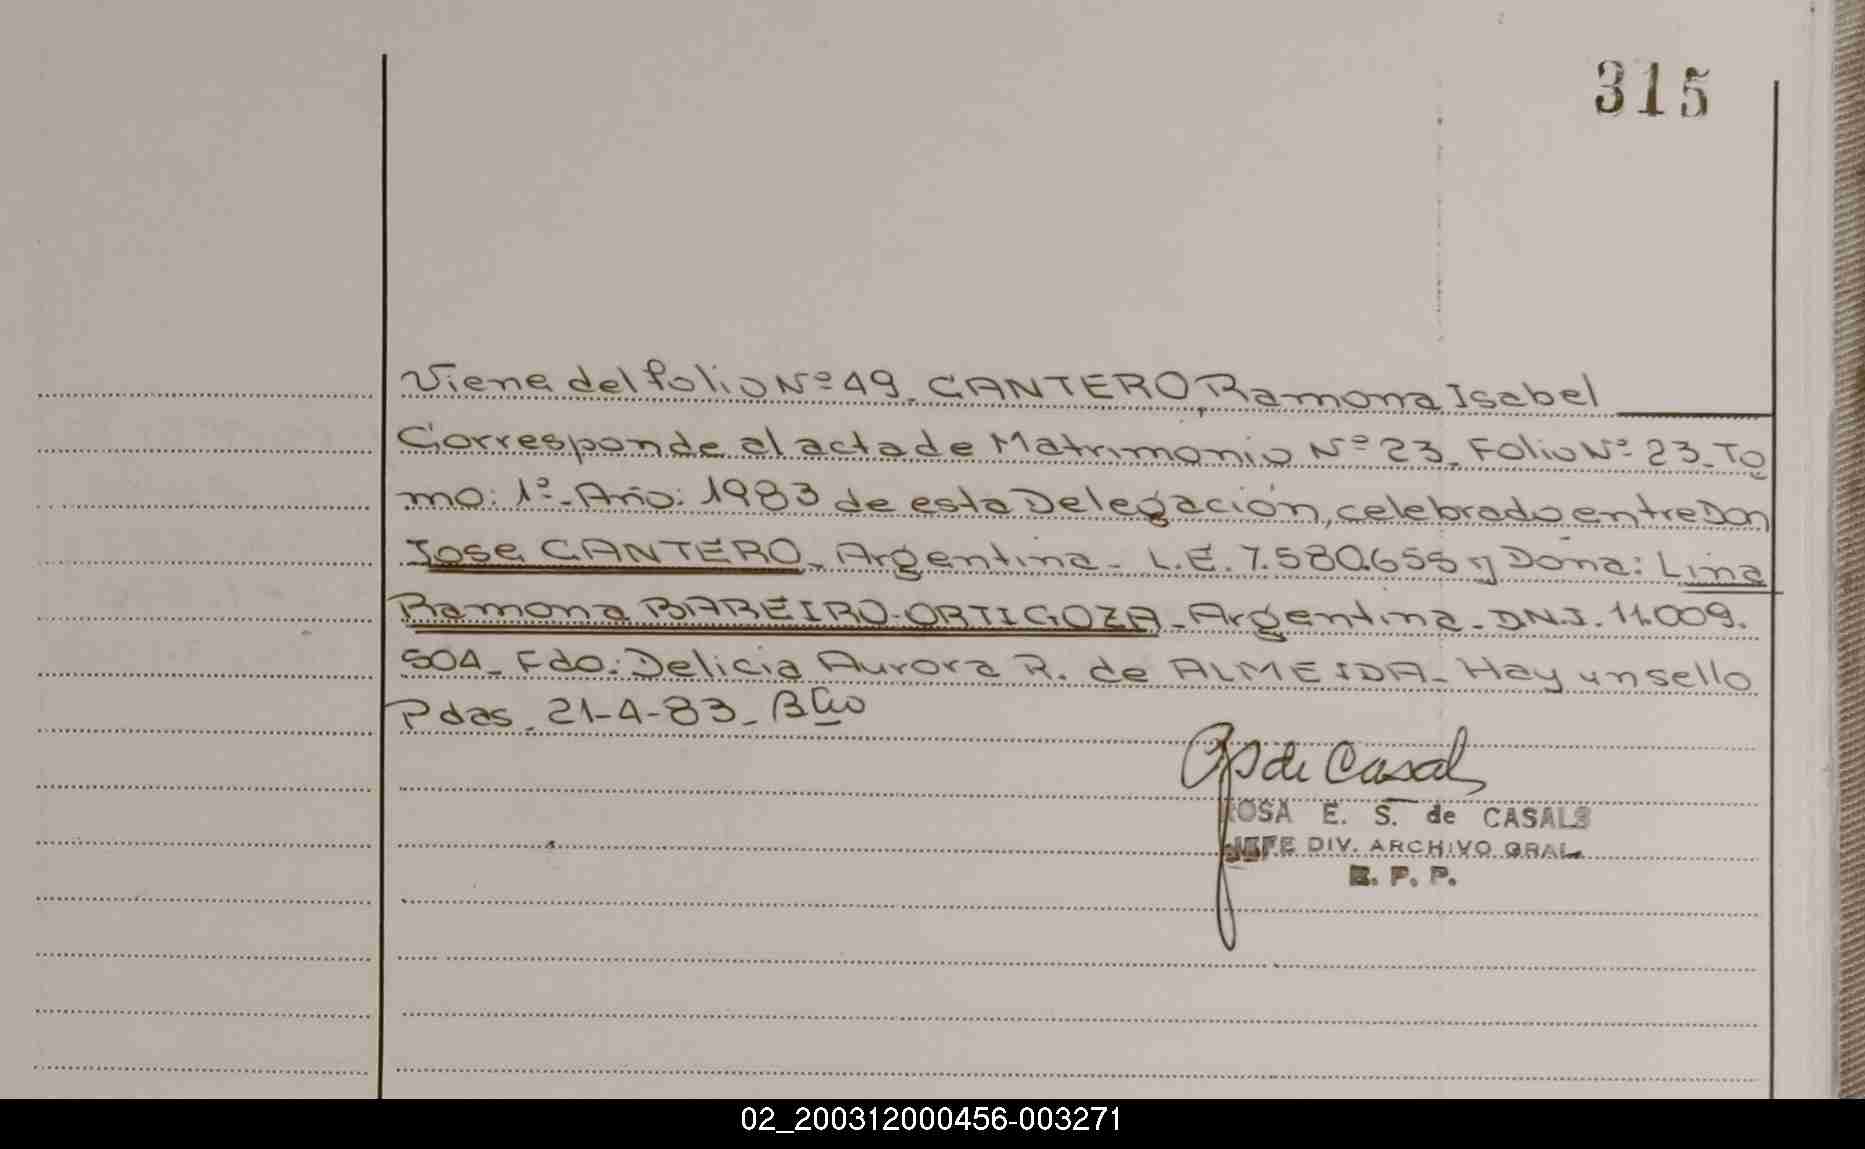 315
Viene del folio Nº 49. CANTERO, Ramona Isabel
Corresponde al acta de Matrimonio Nº 23. Folio Nº 23. To
mo: 1º. Año: 1983 de esta Delegación, celebrado entre Don
Jose CANTERO. Argentina - L.E. 7.580.655 y Doña: Lina
Ramona BAREIRO-ORTIGOZA - Argentina - D.N.I. 11.009.
504. Fdo: Delicia Aurora R. de ALMEIDA - Hay un sello
Pdas. 21-4-83 -
de Casals
ROSA E. S. de CASALS
JEFE DIV. ARCHIVO GRAL.
R. P. P.
02_200312000456-003271